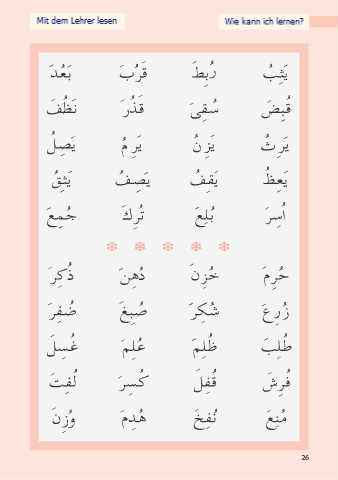 Mit dem Lehrer lesen
Wie kann ich lernen?
يَثِبُ رُبِطَ قَرُبَ بَعُدَ
قُبِضَ سُقِىَ قَذُرَ نَظُفَ
يَرِثُ يَزِنُ يَرِمُ يَصِلُ
يَعِظُ يَقِفُ يَصِفُ يَثِقُ
اُسِرَ بُلِعَ تُرِكَ جُمِعَ
حُرِمَ خُزِنَ دُهِنَ ذُكِرَ
زُرِعَ شُكِرَ صُبِغَ ضُفِرَ
طُلِبَ ظُلِمَ عُلِمَ غُسِلَ
فُرِشَ قُفِلَ كُسِرَ لُفِتَ
مُنِعَ نُفِخَ هُدِمَ وُزِنَ
26